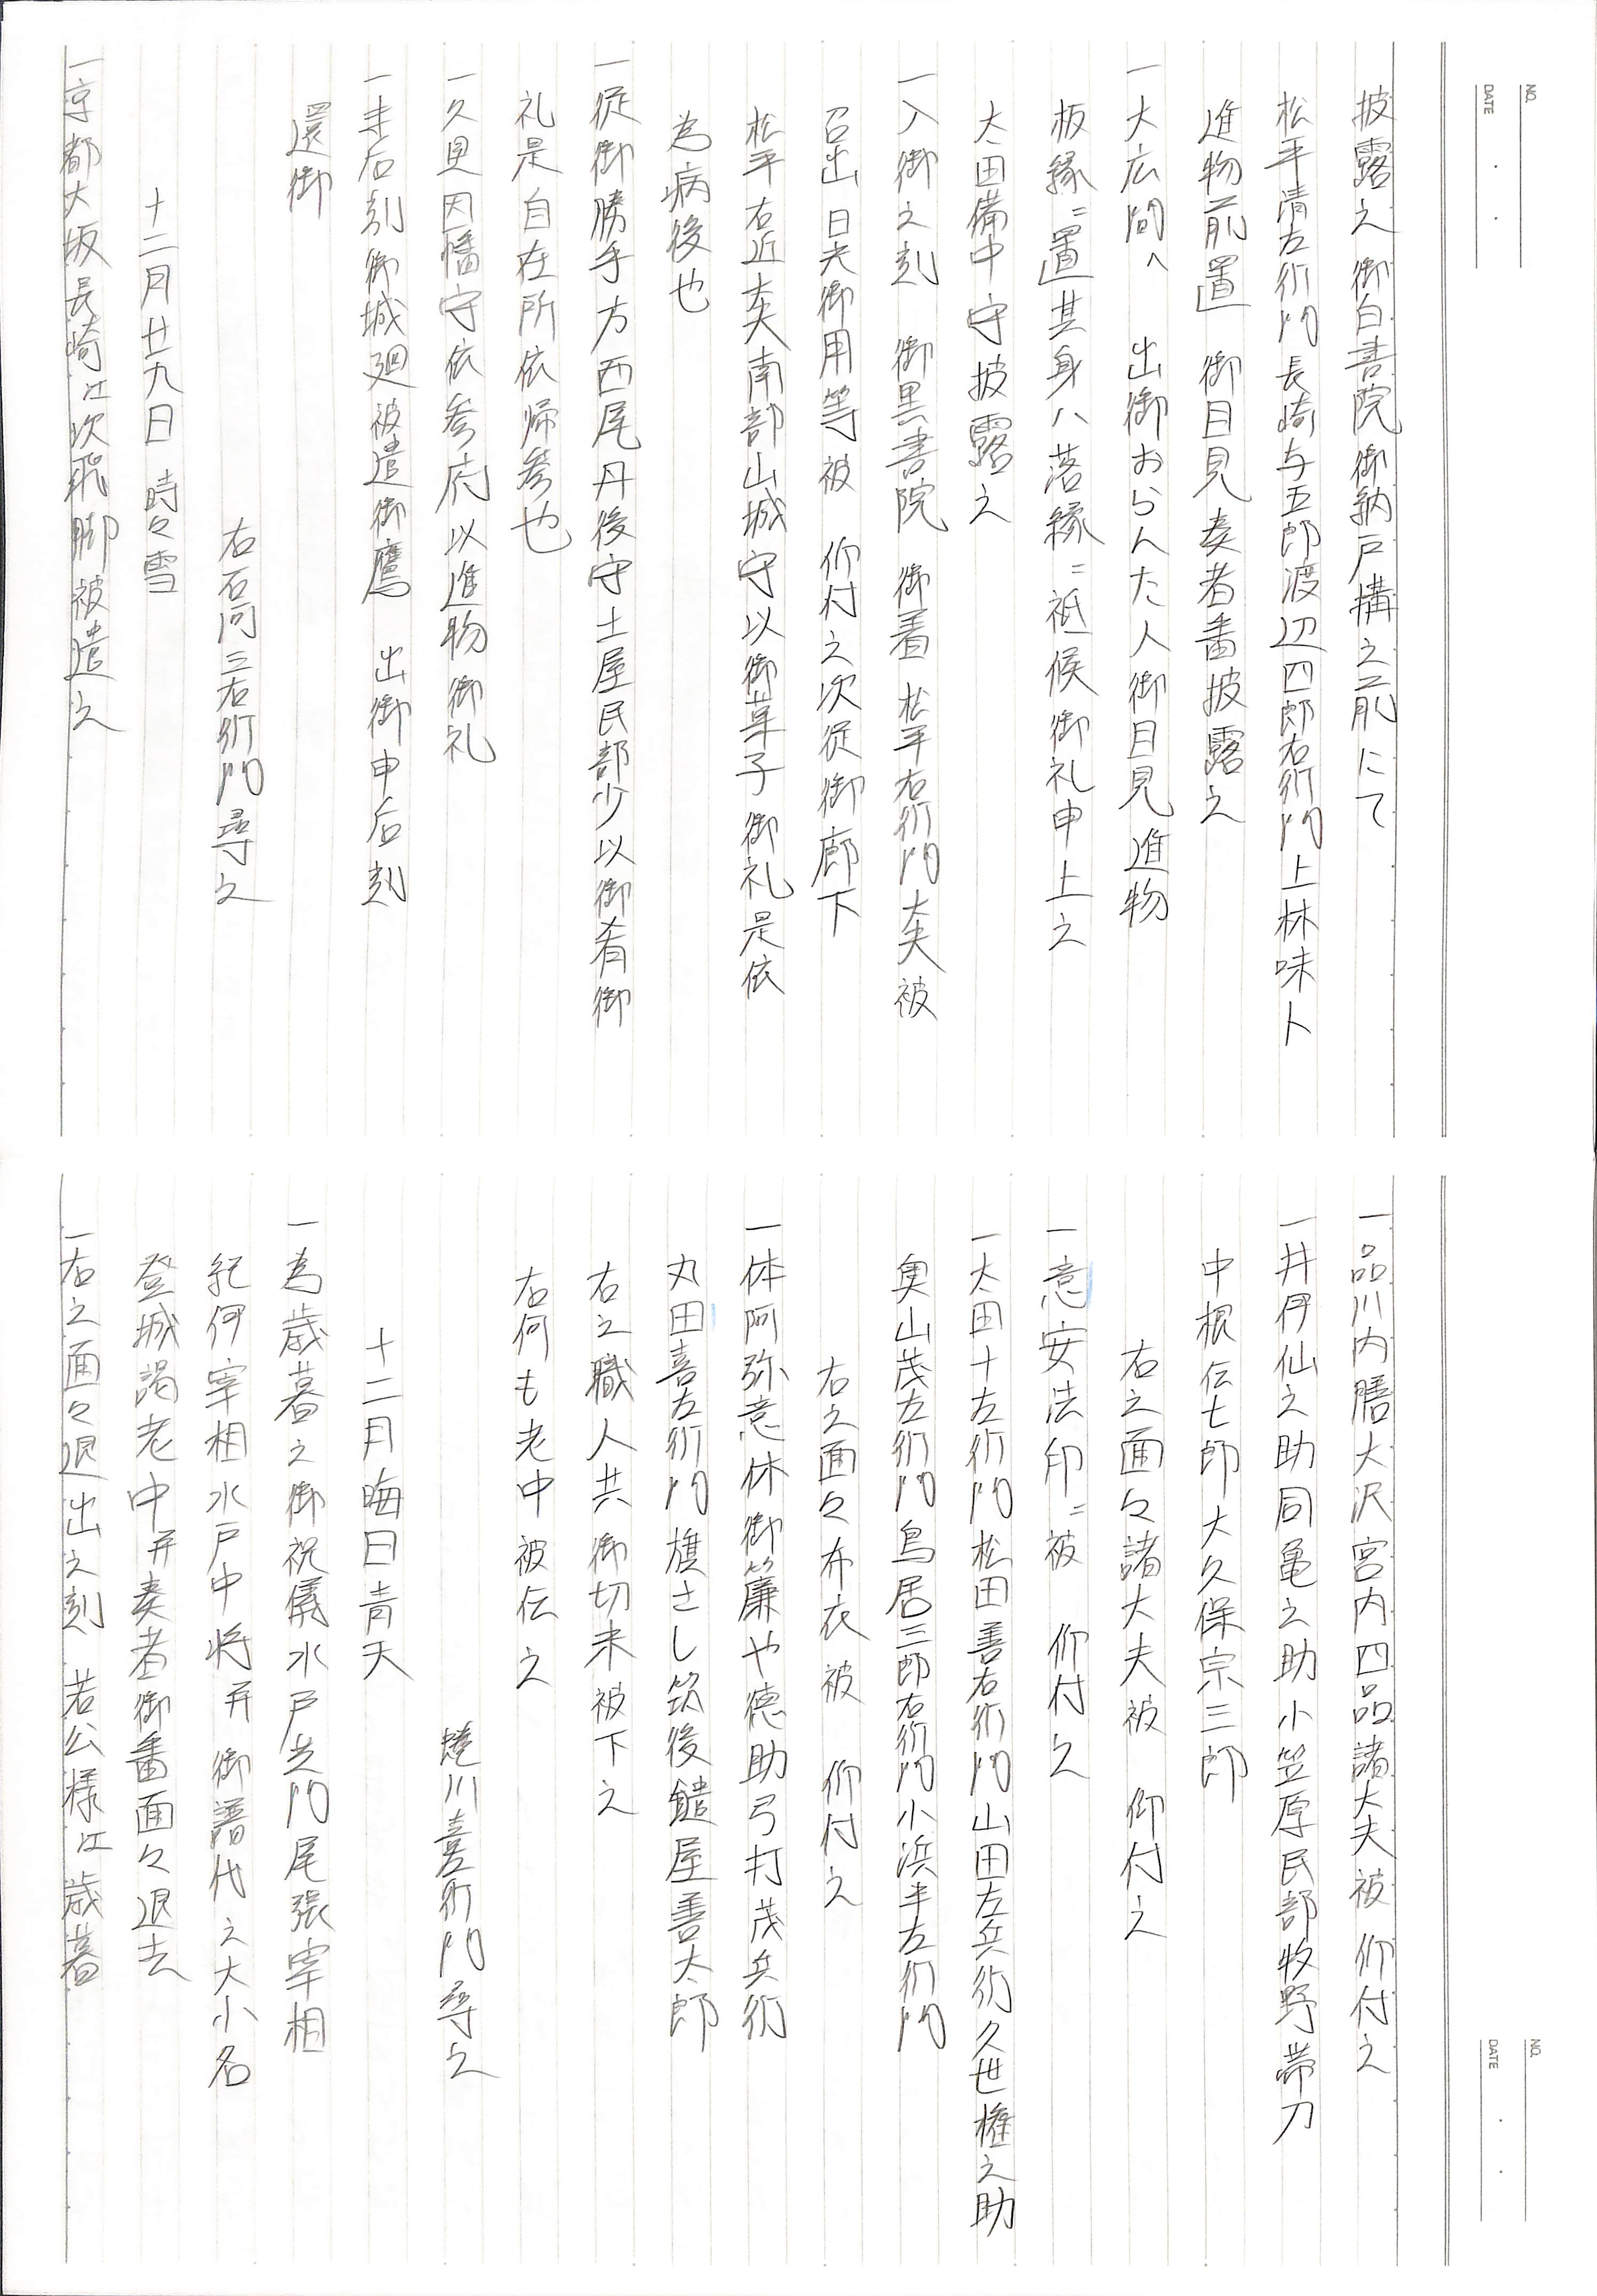 NO.
DATE
披露之 御白書院御納戸構之前にて
松平清左衛門長崎与五郎渡辺四郎右衛門上林味卜
進物前置 御目見奏者番披露之
一大広間へ 出御おらんた人御目見進物
板縁ニ置其身ハ落縁ニ祗候御礼申上之
太田備中守披露之
一入御之刻 御黒書院 御着 松平右衛門大夫被
召出 日光御用等被 仰付之次従御廊下
松平右近大夫南部山城守以御菓子御礼是依
為病後也
一従御勝手方西尾丹後守土屋民部少以御肴御
礼是自在所依帰参也
一久世因幡守依参府以進物御礼
一未后刻御城廻被遣御鷹 出御申后刻
還御
右石河三右衛門尋之
十二月廿九日 時々雪
一京都大坂長崎江次飛脚被遣之
NO.
DATE
一品川内膳大沢宮内四品諸大夫被 仰付之
一井伊仙之助同亀之助小笠原民部牧野帯刀
中根伝七郎大久保宗三郎
右之面々諸大夫被 仰付之
一意安法印ニ被 仰付之
一太田十左衛門松田善右衛門山田左兵衛久世権之助
奥山茂左衛門鳥居三郎右衛門小浜半左衛門
右之面々布衣被 仰付之
一体阿弥意休御簾や徳助弓打茂兵衛
丸田喜左衛門旗さし筑後鑓屋善太郎
右之職人共御切米被下之
右何も老中被伝之
蜷川喜衛門尋之
十二月晦日青天
一為歳暮之御祝儀水戸黄門尾張宰相
紀伊宰相水戸中将并御譜代之大小名
登城謁老中并奏者御番面々退去
一右之面々退出之刻 若公様江歳暮